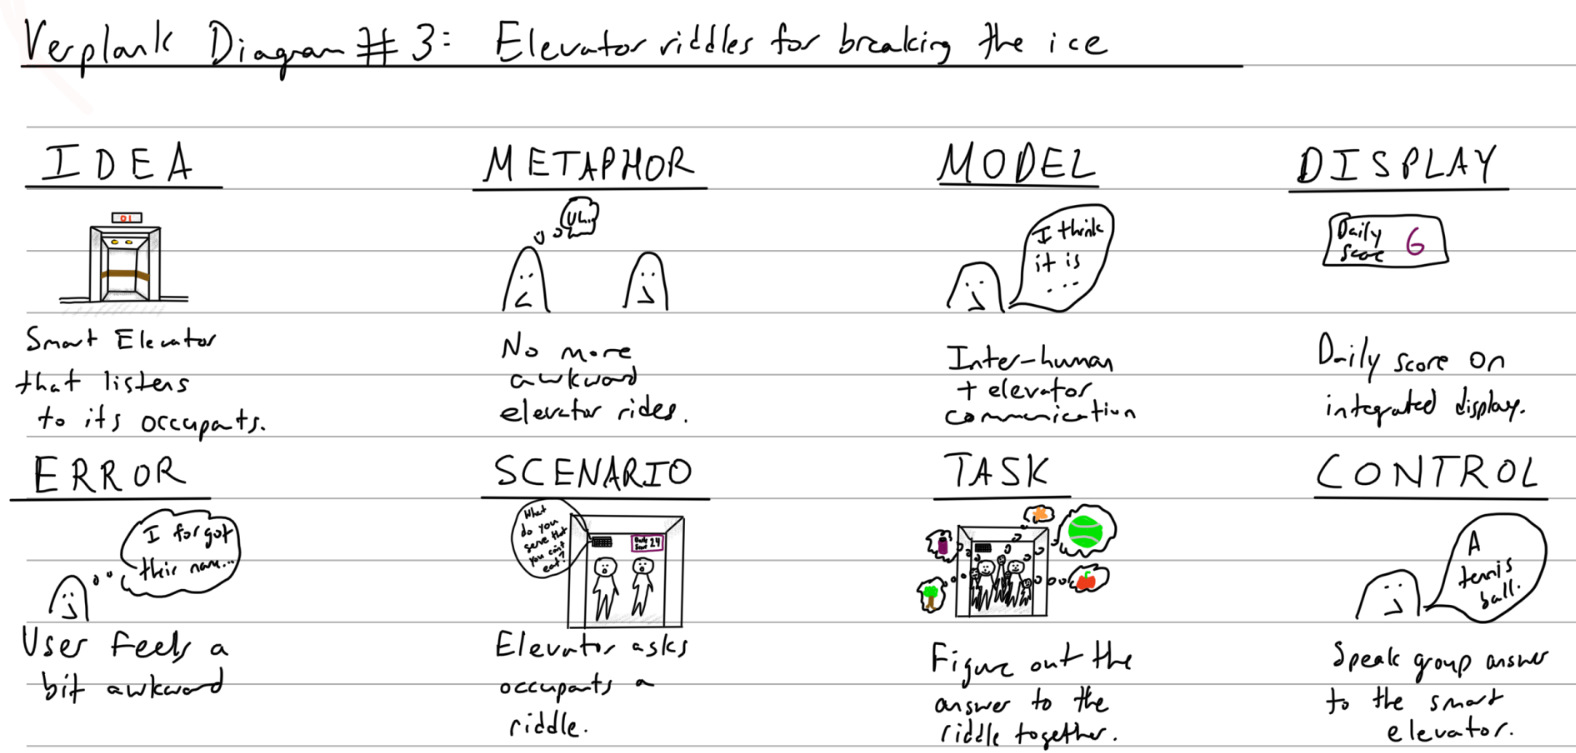 Verplank Diagram #3: Elevator riddles for breaking the ice
IDEA
01
Smart Elevator
that listens
to its occupants.
METAPHOR
Uh..
No more
awkward
elevator rides.
MODEL
I think
it is
...
Inter-human
+ elevator
communication
DISPLAY
Daily
score 6
Daily score on
integrated display.
ERROR
I forgot
their name...
User feels a
bit awkward
SCENARIO
What
do you
serve that
you can't
eat?
Daily
Score 24
Elevator asks
occupants a
riddle.
TASK
Figure out the
answer to the
riddle together.
CONTROL
A
tennis
ball.
Speak group answer
to the smart
elevator.